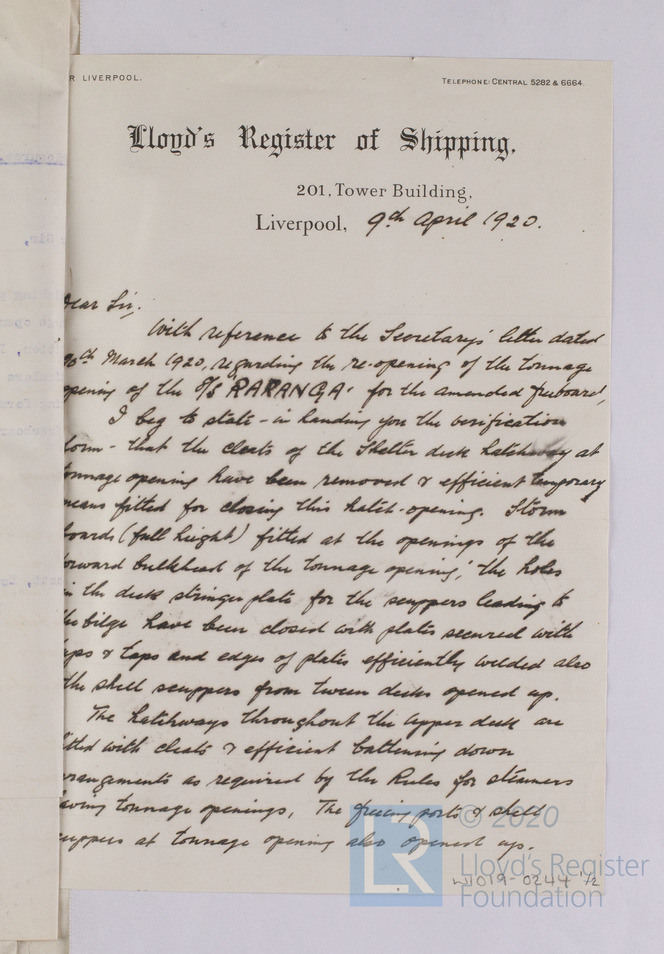 R LIVERPOOL.
TELEPHONE: CENTRAL 5282 & 6664.
Lloyd's Register of Shipping,
201, Tower Building,
Liverpool, 9th April 1920.
Dear Sir,
With reference to the Secretary's letter dated
March 1920, regarding the re-opening of the tonnage
opening of the S/S "RARANGA" for the amended freeboard,
I beg to state - in handing you the verification
form - that the cleats of the Shelter deck hatchway at
tonnage opening have been removed & efficient temporary
means fitted for closing this hatch-opening. Storm
boards (full height) fitted at the openings of the
forward bulkhead of the tonnage opening; the holes
in the deck stringer plate for the scuppers leading to
the bilge have been closed with plates secured with
& taps and edges of plates efficiently welded also
the shell scuppers from tween decks opened up.
The hatchways throughout the upper deck are
itted with cleats & efficient battening down
rrangements as required by the Rules for steamers
having tonnage openings. The freeing ports & shell
scuppers at tonnage opening also opened up.
© 2020
LR
Lloyd's Register
Foundation
W1019-0244 1/2